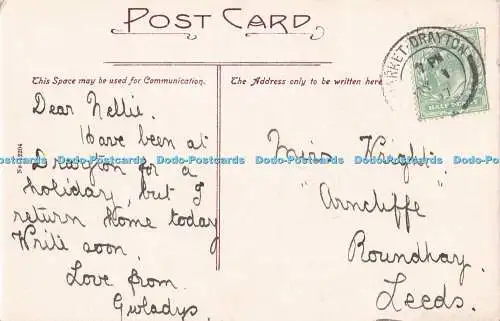 POST CARD
This Space may be used for Communication.
The Address only to be written here
MARKET-DRAYTON
HALFPENNY
Dear Nellie.
Have been at
Drayton for a
holiday, but I
return home today
Write soon.
Love from
Gwladys.
Miss Knight.
"Arncliffe"
Roundhay
Leeds.
Dodo-Postcards Dodo-Postcards Dodo-Postcards Dodo-Postcards Dodo-Postcards